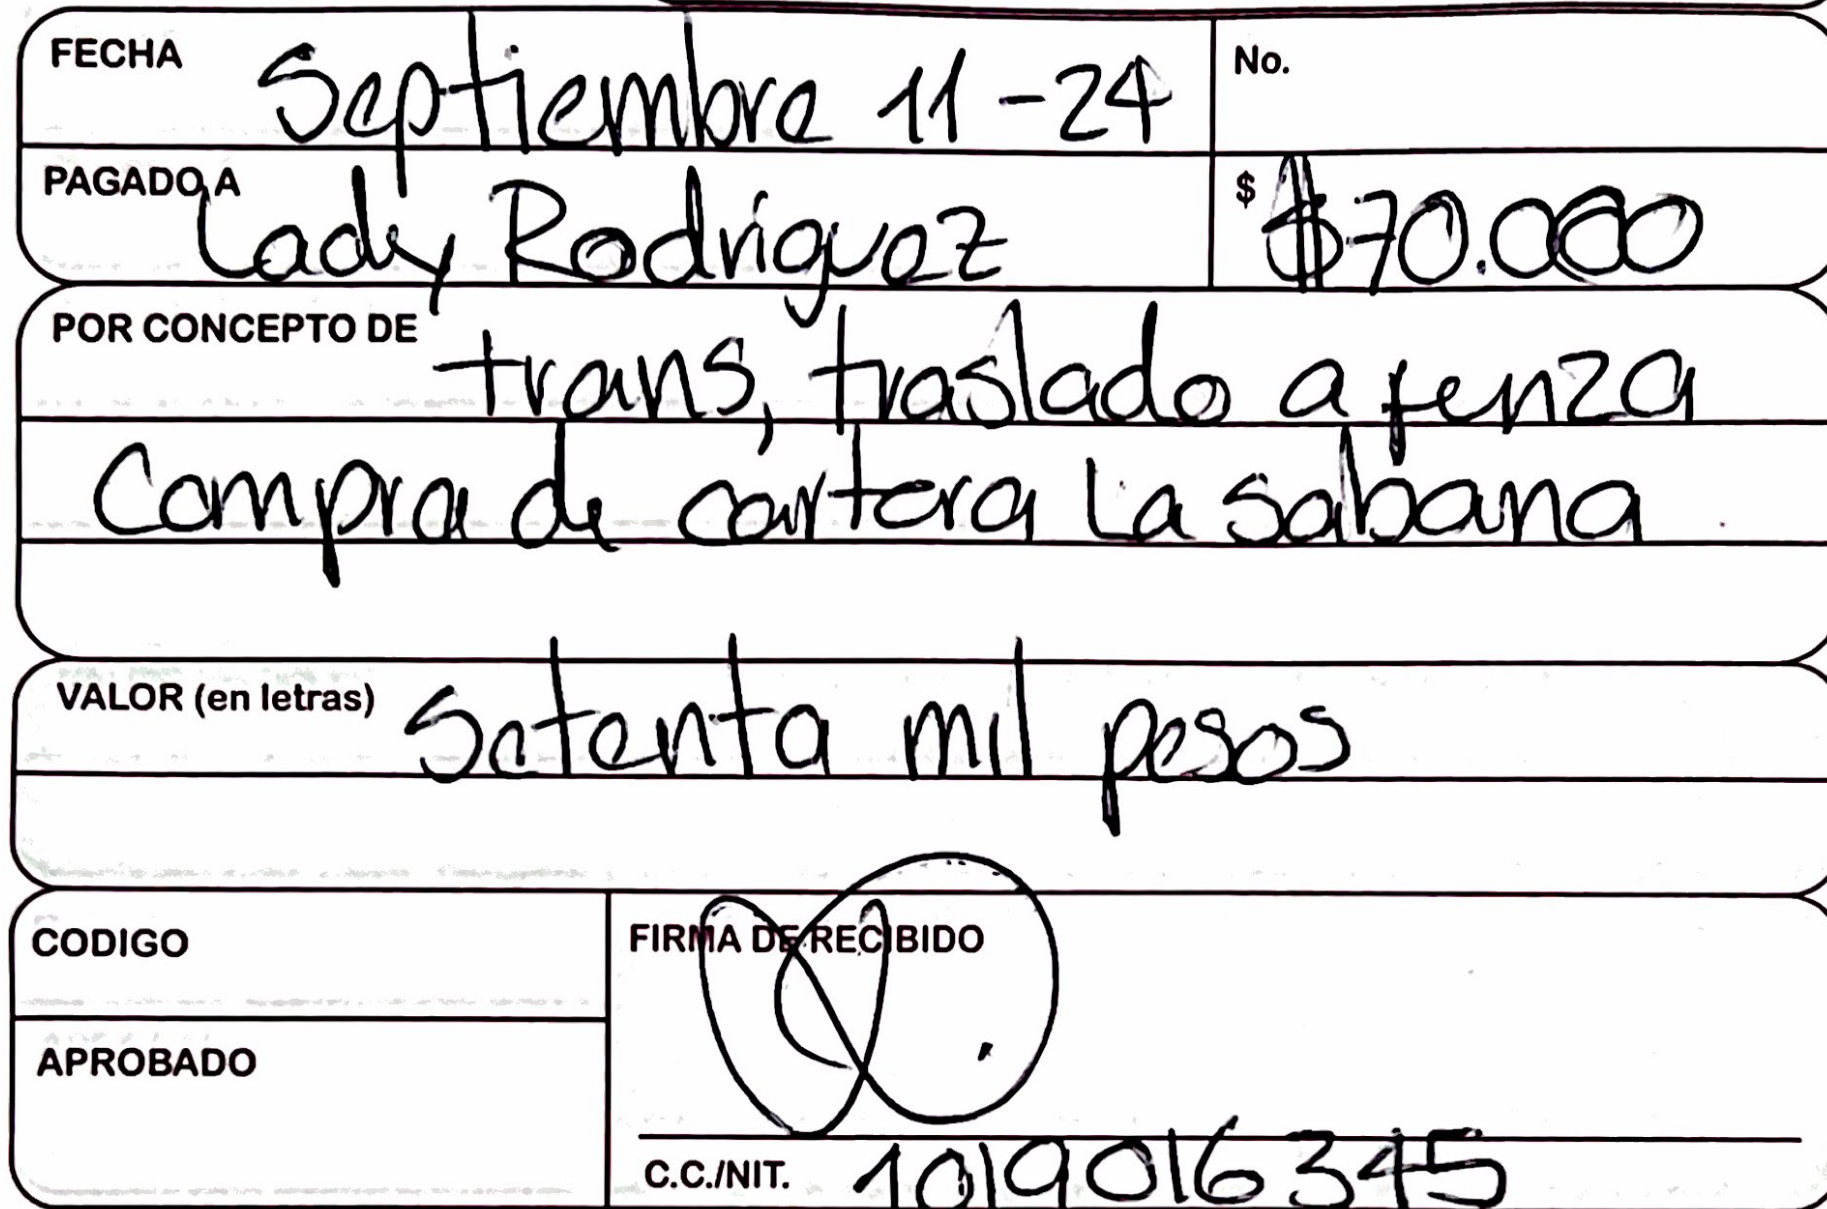 FECHA Septiembre 11-24 No.
PAGADO A Lady Rodriguez $ $70.000
POR CONCEPTO DE trans, traslado a fenza
Compra de cartera La sabana
VALOR (en letras) Setenta mil pesos
CODIGO FIRMA DE RECIBIDO
APROBADO
C.C./NIT. 1019016345